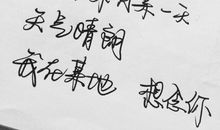 年月某一天
天气晴朗
我在某地 想念你